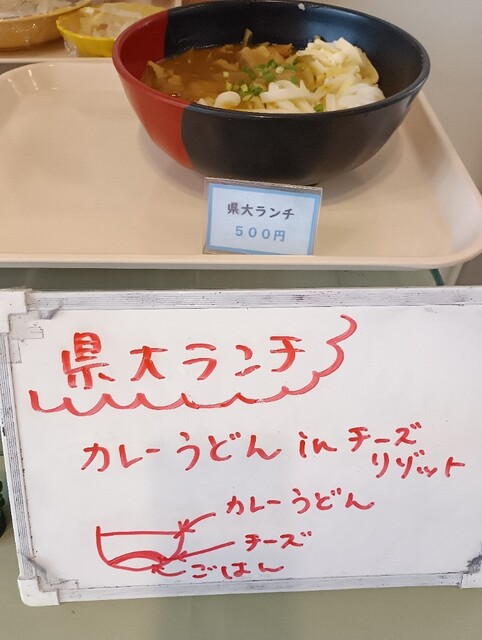 県大ランチ
500円
県大ランチ
カレーうどん in チーズ
リゾット
カレーうどん
チーズ
ごはん